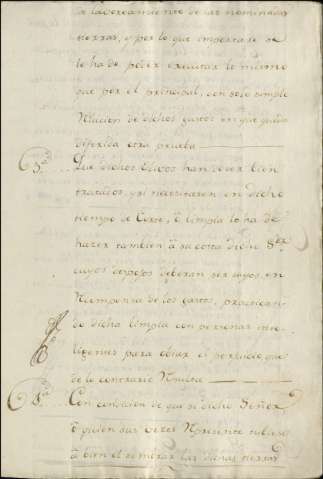 a la cercamiento de las nominadas
tierras, y por lo que importare se
le ha de poder executar lo mismo
que por el principal, con solo simple
Relacion de dichos gastos en que queda
diferida otra prueba
5.ª Que dichos Olivos han de ser bien
tratados, y si necesitaren en dicho
tiempo de Corte, ô limpia lo ha de
hazer tambien â su costa dicho S.or
cuyos despojos deberan ser suyos, en
Recompensa de los gastos, practican-
do dicha limpia con personas inte-
ligentes para obiar el perjuicio que
de lo contrario Resulta
Con condicion de que si dicho Señor
ô quien sus vezes Represente
ô bien el sembrar las dichas tierras